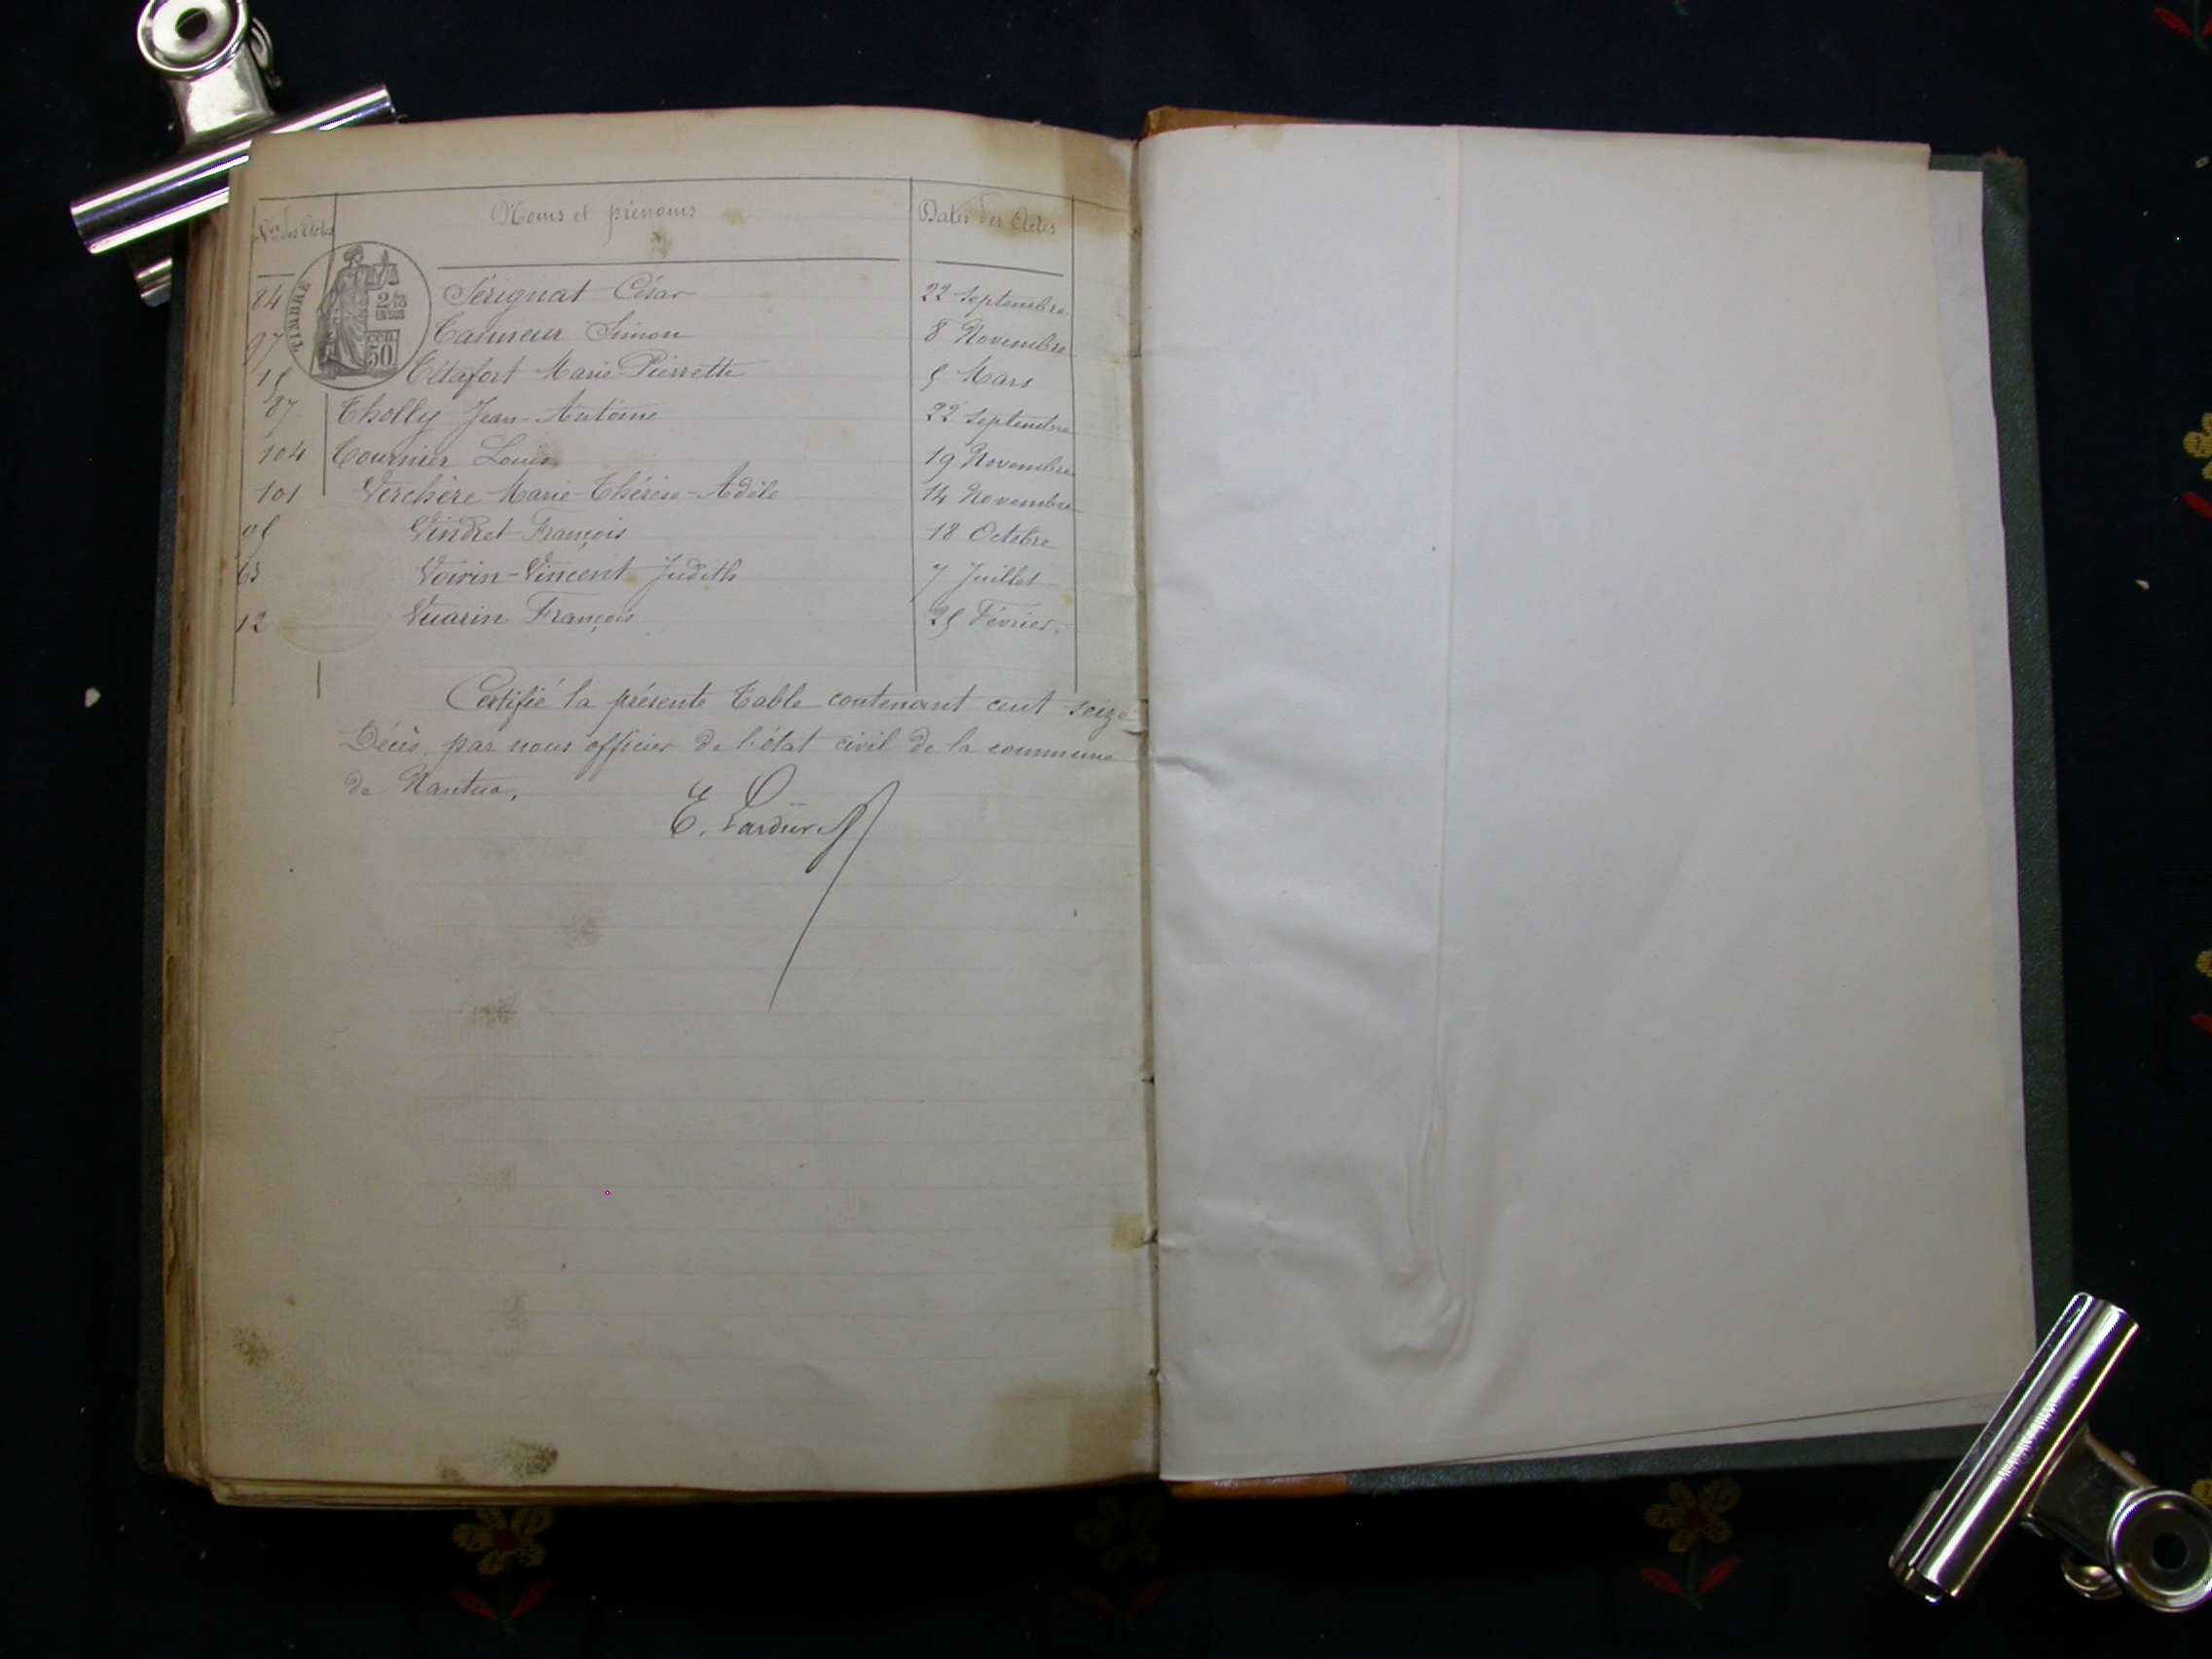 Nos des Actes Noms et prénoms Dates des Actes
TIMBRE
2/10
EN SUS
CEN.
50
84 Sérignat César 22 Septembre
97 Tanneur Simon 8 Novembre
15 Tétafort Marie-Pierrette 5 Mars
87 Tholly Jean-Antoine 22 Septembre
104 Tournier Louis 19 Novembre
101 Verchère Marie-Thérèse-Adèle 14 Novembre
95 Vindret François 18 Octobre
63 Voirin-Vincent Judith 7 Juillet
12 Vuarin François 25 Février.
Certifié la présente Table contenant cent seize
Décès, par nous officier de l'état civil de la commune
de Nantua.
E.